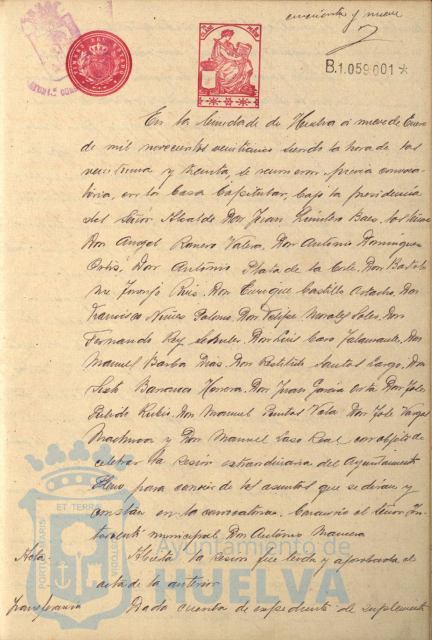 cincuenta y nueve
TIMBRE DEL ESTADO
B.1.059.601 *
En la Ciudad de Huelva a nueve de Enero
de mil novecientos veinticinco siendo la hora de las
veintiuna y treinta, se reunieron previa convoca-
toria, en la Casa Capitular, bajo la presidencia
del Señor Alcalde Don Juan Quintero Baez, los Sres
Don Angel Romero Valero, Don Antonio Domínguez
Ortiz, Don Antonio Plata de la Corte, Don Bartolo-
mé Toronjo Ruiz, Don Enrique Castillo, Don
Francisco Nuñez Palomo, Don Felipe Morales Soles, Don
Fernando Rey, Don Luis Caro, Don
Manuel Barba Dias, Don Restituto Santos Largo, Don
Sixto Barranco, Don Juan García Orta, Don José
Pulido Rubio, Don Manuel Puntas Vela, Don José Vargas
Machuca y Don Manuel Laso Real con objeto de
celebrar la sesión extraordinaria del Ayuntamiento
Pleno para conocer de los asuntos que se dirán y
constan en la convocatoria. Concurrió el Señor In-
terventor municipal Don Antonio
Acta. Abierta la sesión fue leída y aprobada el
acta de la anterior.
Transferencia Dada cuenta de expediente de suplemento
PORTUS MARIS ET TERRAE CUSTODIA
Ayuntamiento de
HUELVA